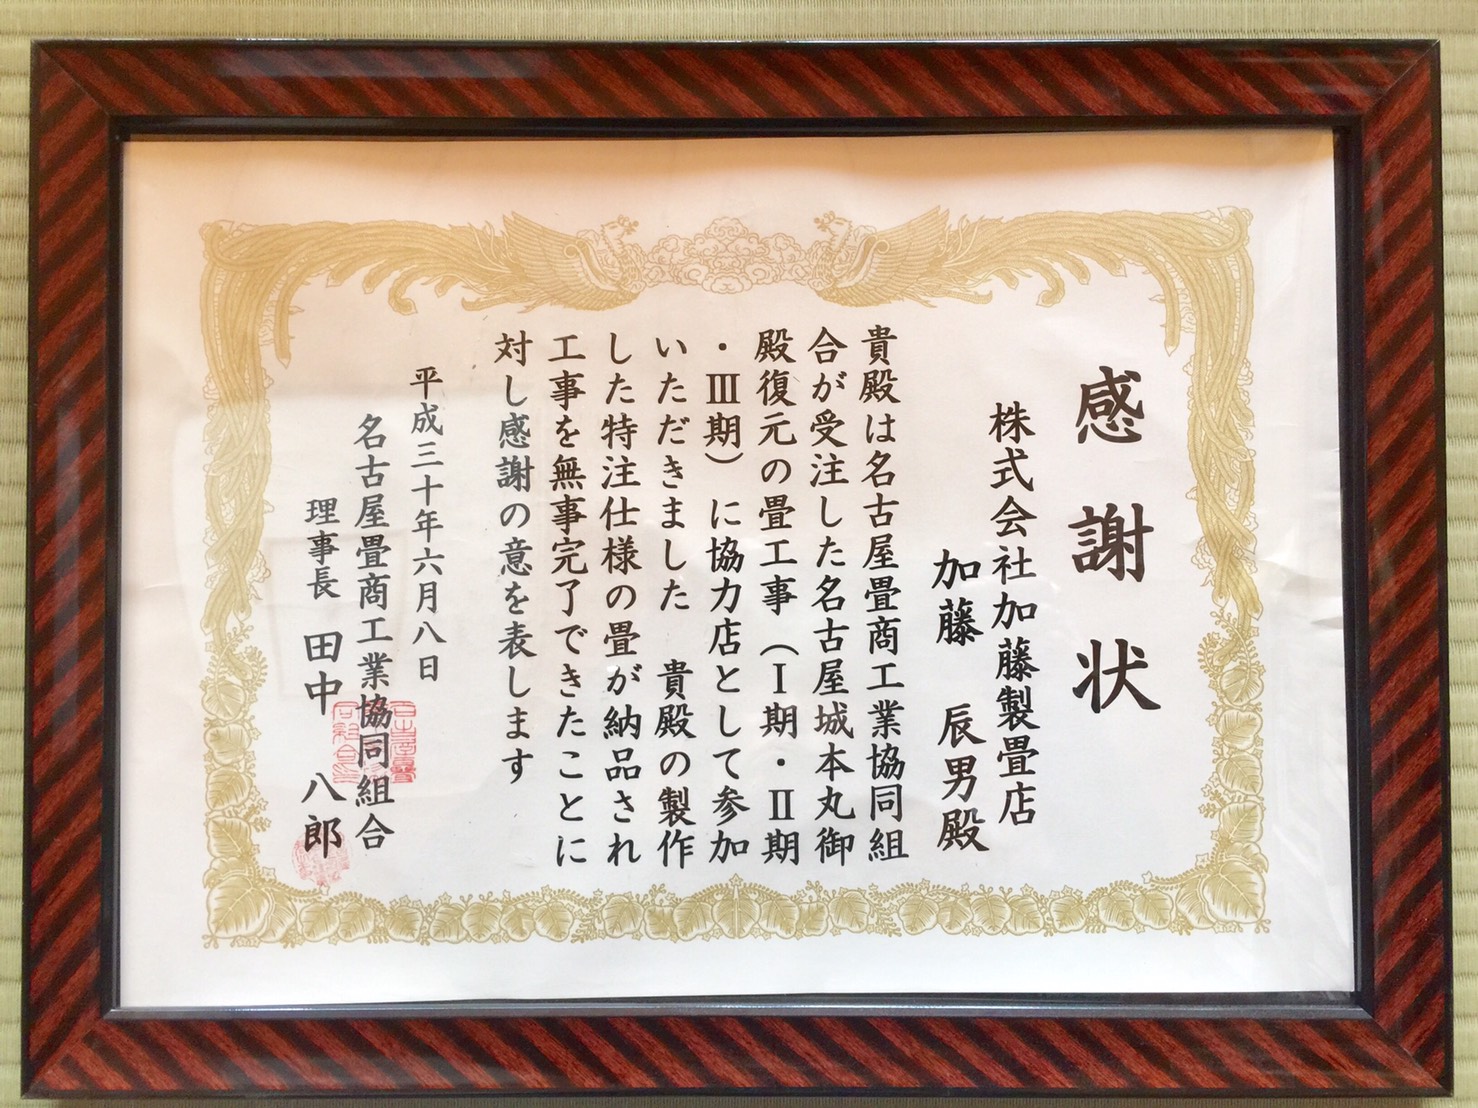 感謝状
株式会社加藤製畳店
加藤 辰男殿
貴殿は名古屋畳商工業協同組
合が受注した名古屋城本丸御
殿復元の畳工事(Ⅰ期・Ⅱ期
・Ⅲ期)に協力店として参加
いただきました 貴殿の製作
した特注仕様の畳が納品され
工事を無事完了できたことに
対し感謝の意を表します
平成三十年六月八日
名古屋畳商工業協同組合
理事長 田中 八郎